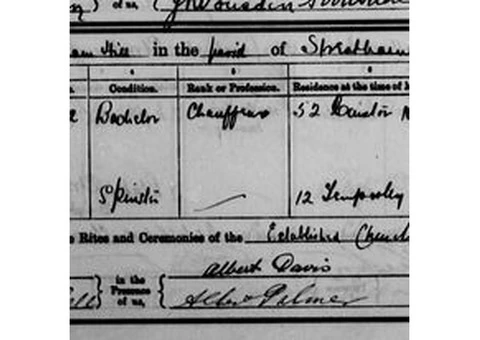 of us,
Hill in the parish of Streatham
4 5 6
Condition. Rank or Profession. Residence at the time of M
Bachelor Chauffeur 52
Spinster 12
Rites and Ceremonies of the Established Church
in the Presence of us,
Albert Davis
Palmer